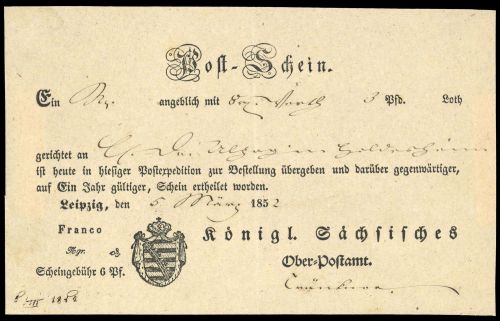 Post-Schein.
Ein angeblich mit 3 Pfd. Loth
gerichtet an
ist heute in hiesiger Postexpedition zur Bestellung übergeben und darüber gegenwärtiger,
auf Ein Jahr gültiger, Schein ertheilet worden.
Leipzig, den 6 März 1852
Franco
Ngr. ₰
Scheingebühr 6 Pf.
Königl. Sächsisches
Ober-Postamt.